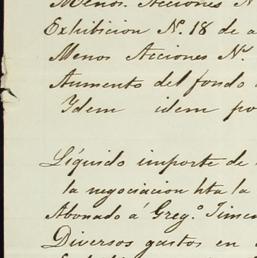 Menos. Acciones N
Exhibicion N.º 18 de a
Menos Acciones Nº.
Aumento del fondo
Idem idem po
Líquido importe de
la negociacion hta la
Abonado á Greg.º Timen
Diversos gastos en